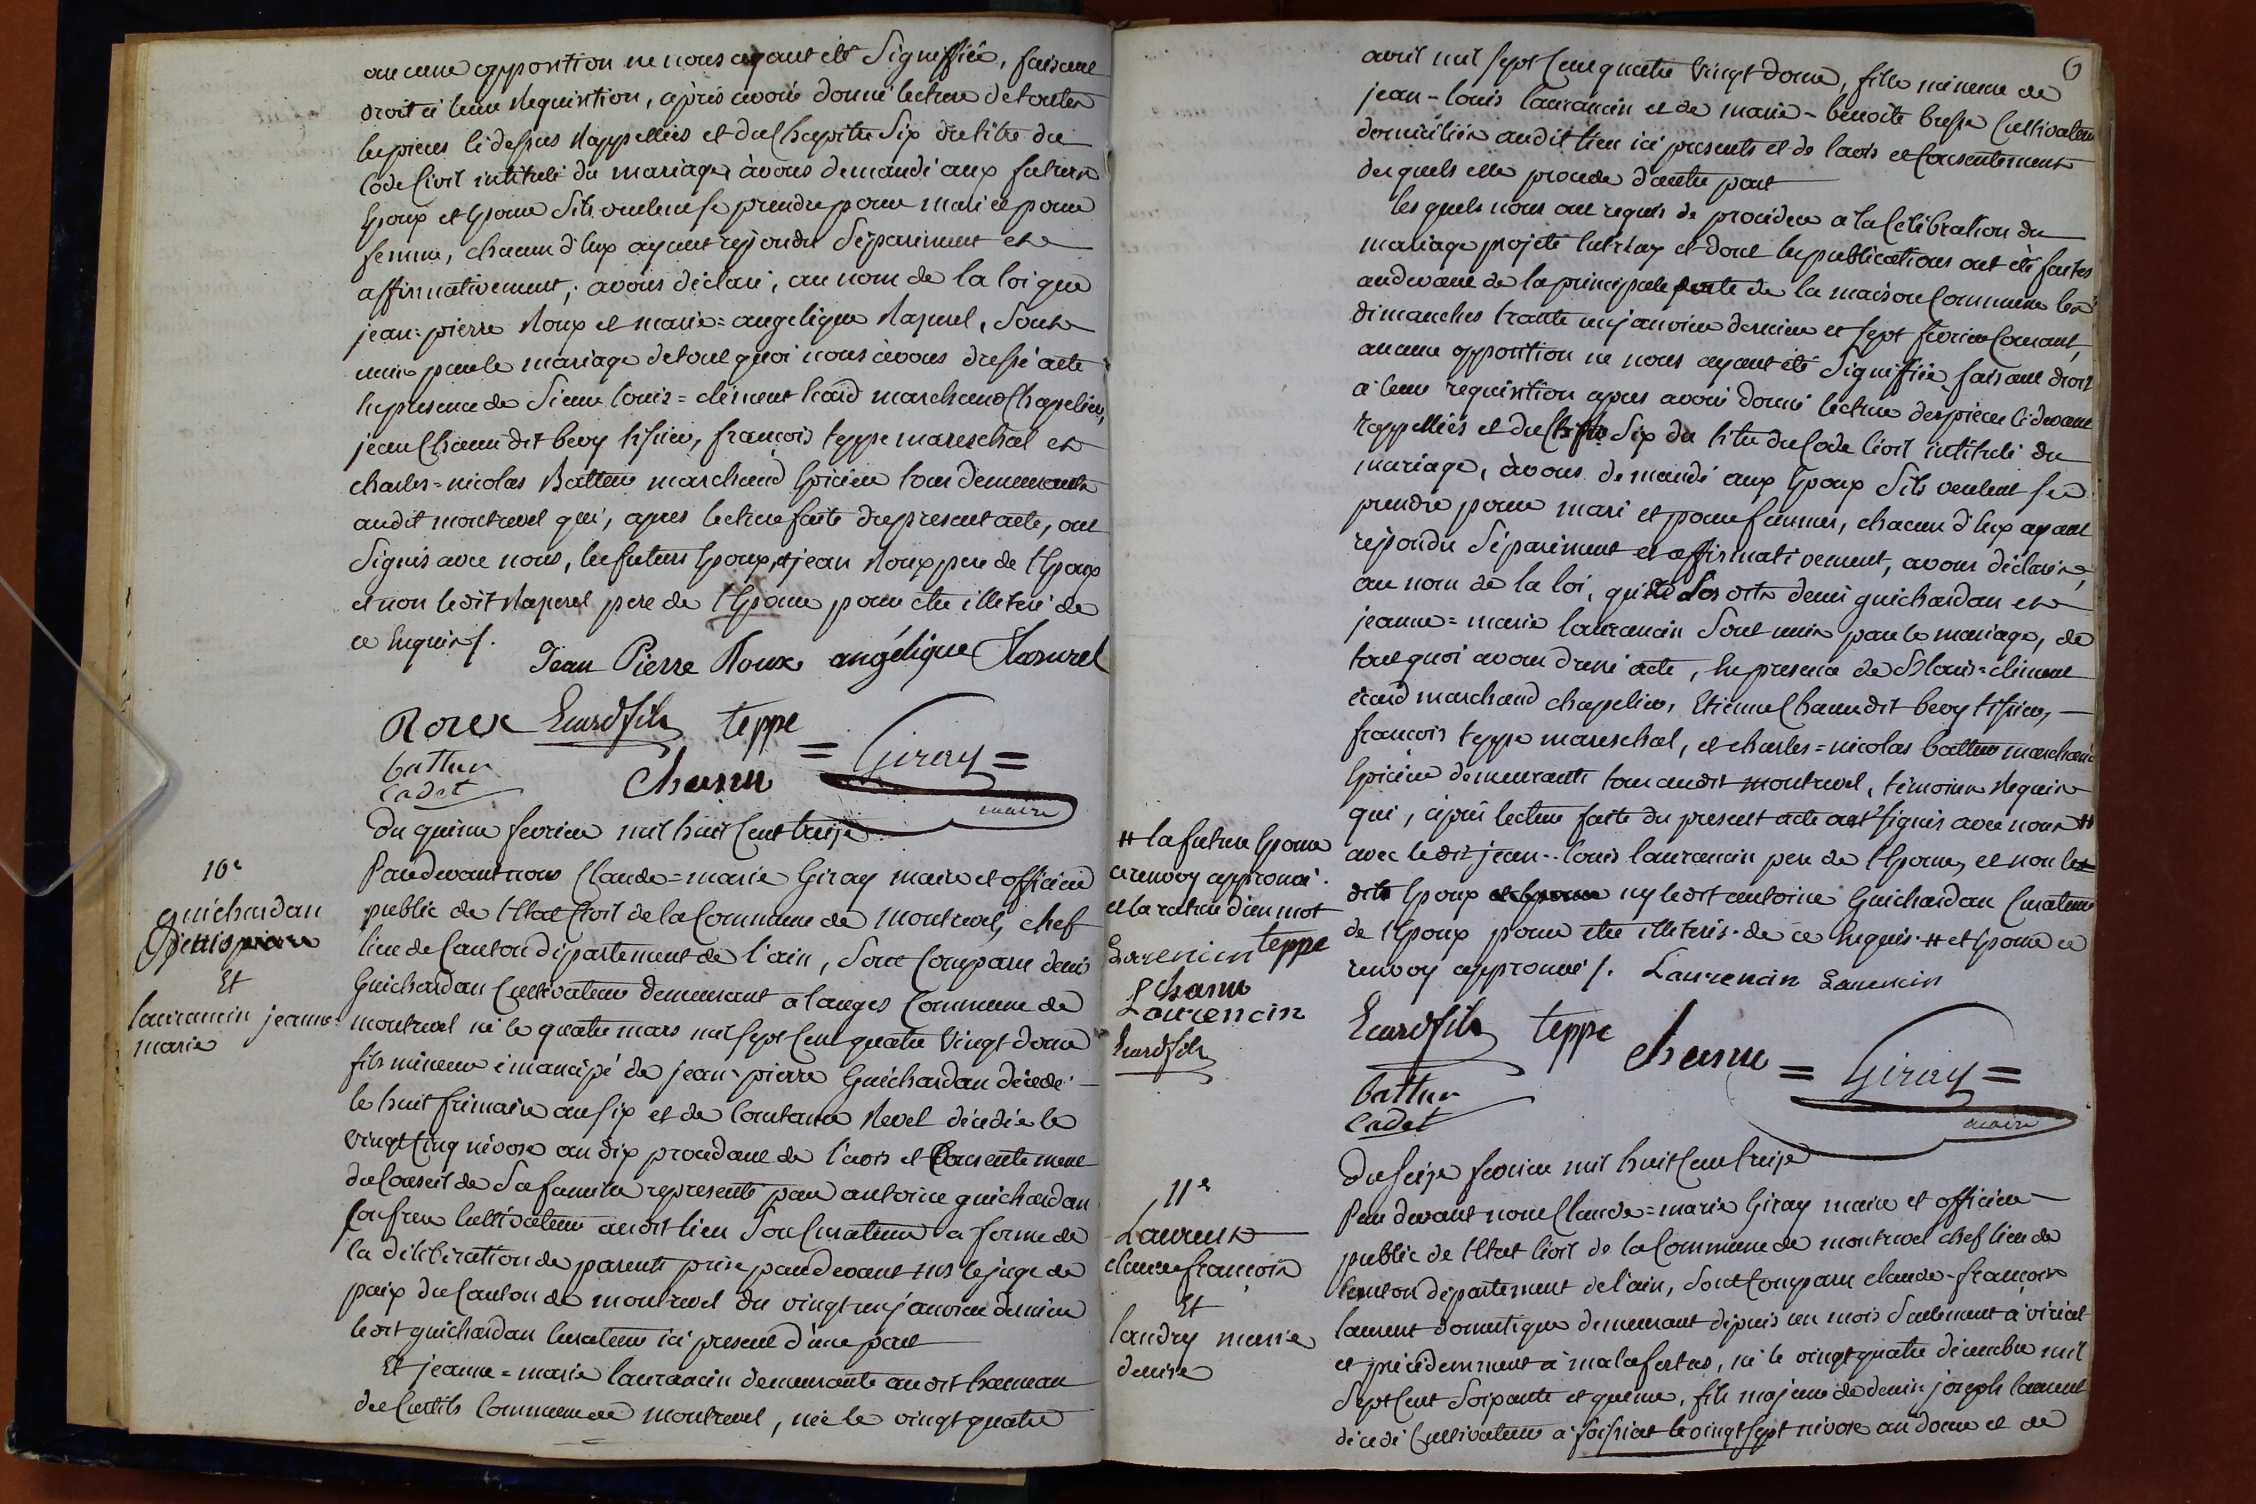 aucune opposition ne nous ayant été Signiffiée, faisant
droit à leur Requisition, après avoir donné lecture de toutes
les pieces ci dessus Rappellées et du Chapitre Six du titre du
Code Civil intitulé du mariage, avons demandé aux futurs
Epoux et Epouse S'ils veulent se prendre pour mari et pour
femme, chacun d'Eux ayant repondu Séparément et
affirmativement; avons déclaré, au nom de la loi que
jean=pierre Roux et marie=angelique Razurel, Sont
unis par le mariage de tout quoi nous avons dressé acte
En presence de Sieur Louis=clément Ecard marchand Chapelier,
jean Chanu dit bevy tissier, françois teppe mareschal et
charles=nicolas Battur marchand Epicier tous demeurants
audit montrevel qui, après lecture faite du present acte, ont
Signés avec nous, les futurs Epoux, et jean Roux pere de l'Epoux
et non ledit Razurel pere de l'Epouse pour être illeteré de
ce Enquis /.
Jean Pierre Roux angélique Razurel
Roux Ecard fils teppe
battur cadet Chanu = Giray =
maire
Du quinze fevrier mil huit Cent treize
10e
guichardan
Denis
Et
laurancin jeanne=
marie
Pardevant nous Claude=marie Giray maire et officier
public de l'Etat Civil de la Commune de montrevel, chef
lieu de Canton département de l'ain, Sont Comparu denis
Guichardan Cultivateur demeurant à langes Commune de
montrevel né le quatre mars mil Sept Cent quatre Vingt douze
fils mineur émancipé de jean=pierre Guichardan décédé
le huit frimaire an six et de Constance Revel décédée le
vingt Cinq nivose an dix procédant de l'avis et Consentement
du Conseil de Sa famille representé par antoine guichardan
Son frere Cultivateur audit lieu Son Curateur a forme de
la délibération de parents prise pardevant Mr le juge de
paix du Canton de montrevel du vingt un janvier dernier
ledit guichardan Curateur ici present d'une part
Et jeanne=marie laurancin demeurante audit hameau
des Curtils Commune de montrevel, née le vingt quatre
6
avril mil Sept Cent quatre Vingt douze, fille mineure de
jean-louis laurancin et de marie-benoite bresse Cultivateurs
domiciliés audit lieu ici presents et de l'avis et Consentement
desquels elle procede d'autre part
les quels nous ont requis de procéder a la Célébration du
mariage projeté entr'Eux et dont les publications ont été faites
au devant de la principale porte de la maison Commune les
dimanches trente un janvier dernier et Sept fevrier Courant,
aucune opposition ne nous ayant été Signifiée faisant droit
à leur requisition apres avoir donné lecture des pieces ci devant
rappellées et du Six du titre du Code Civil intitulé du
mariage, avons demandé aux Epoux S'ils veulent se
prendre pour mari et pour femme, chacun d'Eux ayant
répondu Séparément et affirmativement, avons déclaré,
au nom de la loi, que denis guichardan et
jeanne=marie laurancin Sont unis par le mariage, de
tout quoi avons dressé acte, En presence de Sr louis=clément
écard marchand chapelier, Etienne Chanu dit bevy tissier,
françois teppe mareschal, et charles=nicolas battur marchand
Epicier demeurants tous audit montrevel, témoins Requis
qui, après lecture faite du present acte ont signés avec nous #
avec ledit jean-louis laurancin pere de l'Epouse, et non les
dits Epoux ny ledit antoine Guichardan Curateur
de l'Epoux pour être illeterés de ce Enquis # et Epouse ce
renvoy approuvé /. Laurencin Laurencin
# la future Epouse
ce renvoy approuvé.
et la rature d'un mot
Laurencin teppe
Chanu
Laurencin
Ecard fils
Ecard fils teppe Chanu = Giray =
battur
cadet
maire
Du Seize fevrier mil huit Cent treize
11e
Laurent
claude françois
Et
landry marie
denise
Par devant nous Claude=marie Giray maire et officier
public de l'Etat Civil de la Commune de montrevel chef lieu de
Canton département de l'ain, Sont Comparu claude-françois
laurent domestique demeurant depuis un mois Seulement à viriat
et précédemment à malafretas, né le vingt quatre décembre mil
Sept Cent Soixante et quinze, fils majeur de denis joseph laurent
décédé Cultivateur à foissiat le vingt Sept nivose an douze et de